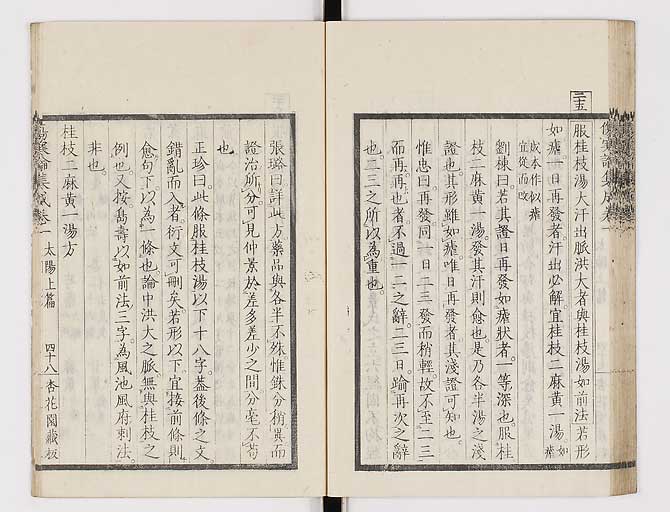 二十五
服桂枝湯大汗出脈洪大者與桂枝湯如前法若形
如瘧一日再發者汗出必解宜桂枝二麻黃一湯如瘧
成本作似瘧
宜從而改
劉棟曰若其證日再發如瘧狀者一等深也服桂
枝二麻黃一湯發其汗則愈也是乃各半湯之淺
證也其形雖如瘧唯日再發者其淺證可知也
惟忠曰再發同一日二三發而稍輕故不至二三
而再再也者不過一二之辭二三日踰再次之辭
也二三之所以為重也
張璐曰詳此方藥品與各半不殊惟銖分稍異而
證治所分可見仲景於差多差少之間分毫不苟
也
正珍曰此條服桂枝湯以下十八字蓋後條之文
錯亂而入者衍文可刪矣若形以下宜接前條則
愈句下以為一條也論中洪大之脈無與桂枝之
例也又按舄壽以如前法三字為風池風府刺法
非也
桂枝二麻黃一湯方
傷寒論集成卷一 太陽上篇 四十八 杏花園藏板